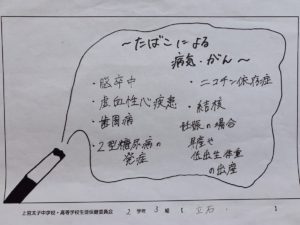 ～たばこによる
病気・がん～
・脳卒中
・虚血性心疾患
・歯周病
・2型糖尿病の
発症
・ニコチン依存症
・結核
妊娠の場合
早産や
低出生体重
の出産
上宮太子中学校・高等学校生徒保健委員会
2 学年 3 組